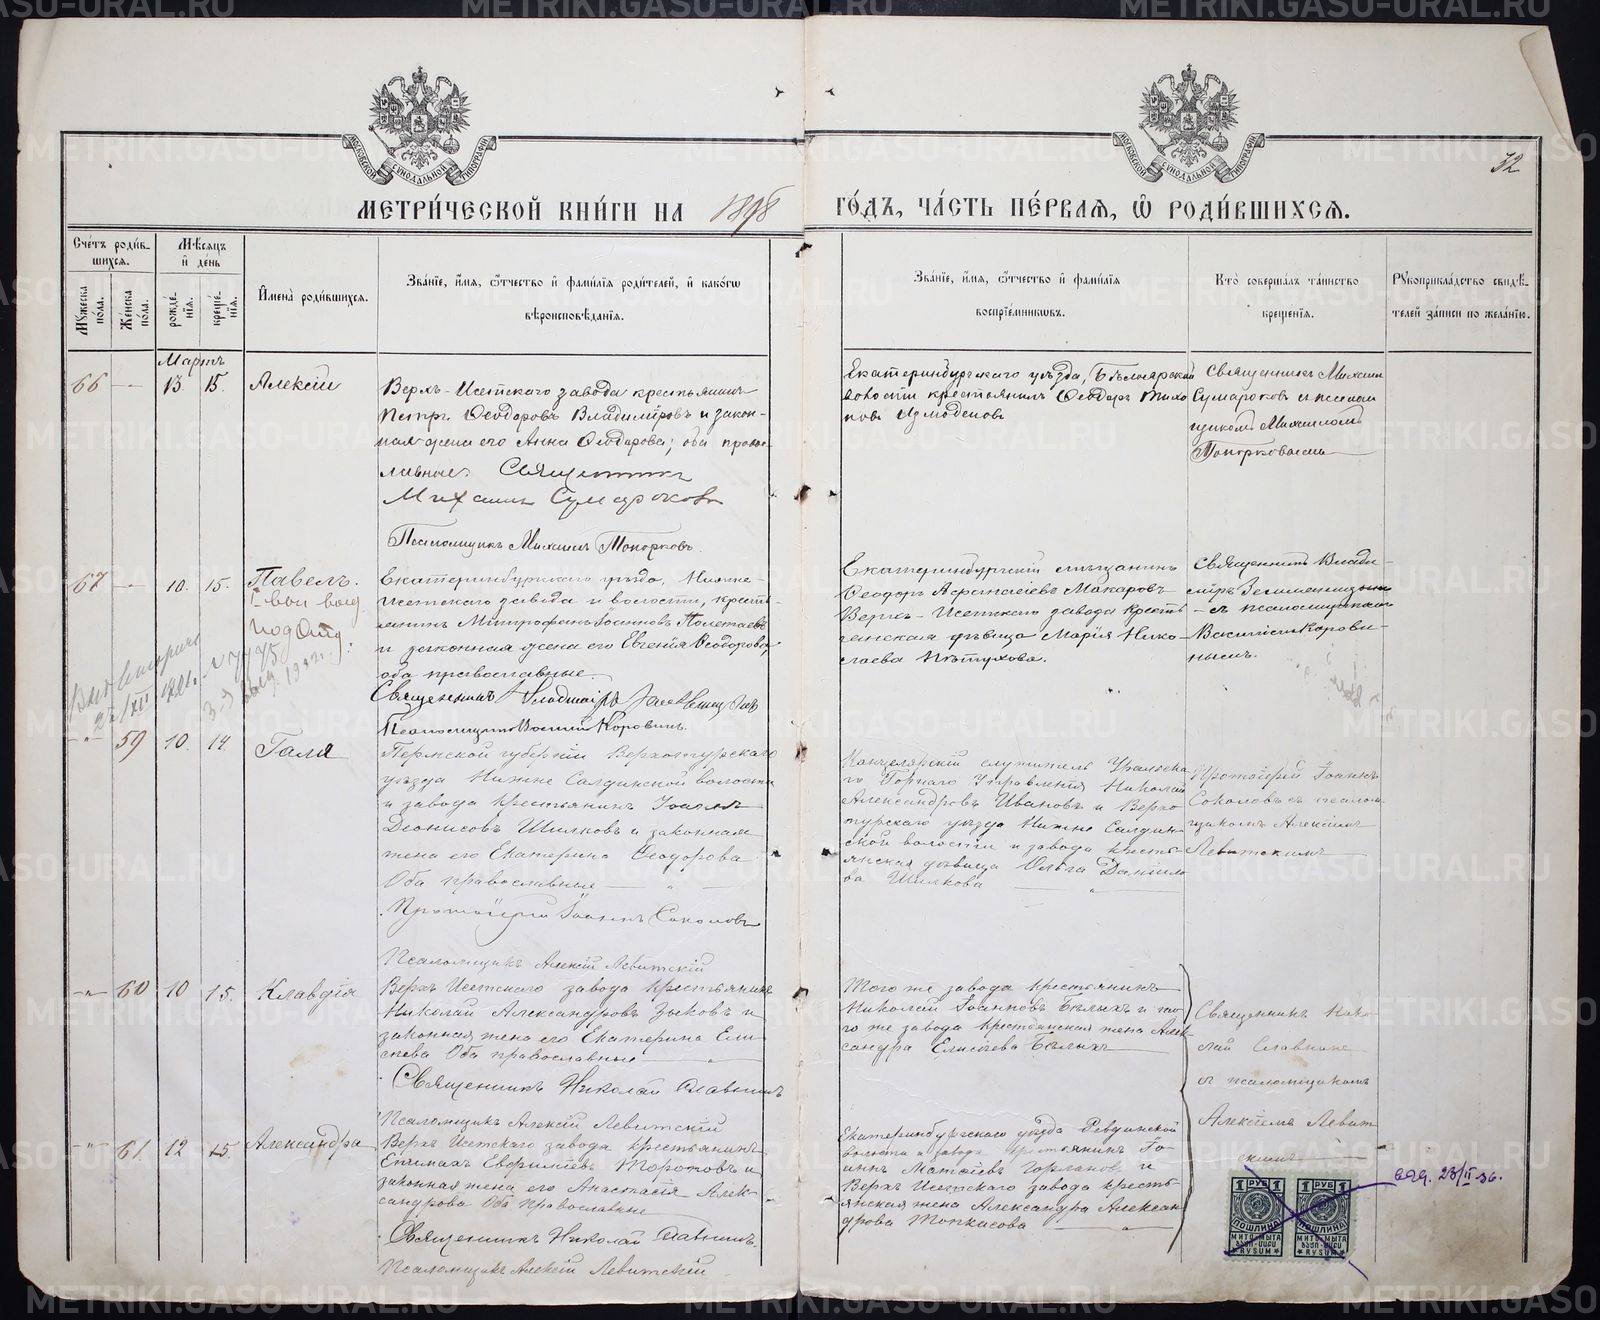 МОСКОВСКОЙ СѴНОДАЛЬНОЙ ТИПОГРАФІИ
МОСКОВСКОЙ СѴНОДАЛЬНОЙ ТИПОГРАФІИ
32
МЕТРИ́ЧЕСКОЙ КНИ́ГИ НА 1898 ГО́ДЪ, ЧА́СТЬ ПЕ́РВАЯ, Ѡ РОДИ́ВШИХСЯ.
Сче́тъ роди́вшихся.
Мѣ́сяцъ и҆ де́нь
Му́жеска по́ла.
Же́нска по́ла.
рожде́нїя.
креще́нїя.
И҆мена̀ роди́вшихся.
Зва́нїе, и҆́мя, ѻ҆́тчество и҆ фами́лїя роди́телей, и҆ како́гѡ вѣроисповѣ́данїя.
Зва́нїе, и҆́мя, ѻ҆́тчество и҆ фами́лїя воспрїе́мникѡвъ.
Кто̀ соверша́лъ та́инство креще́нїя.
Рꙋкоприкла́дство свидѣ́телей за́писи по жела́нїю.
Мартъ
66 — 13. 15. Алексій
Верхъ-Исетскаго завода крестьянинъ
Петръ Ѳеодоровъ Владиміровъ и закон-
ная жена его Анна Ѳеодорова; оба право-
славные. Священникъ
Михаилъ Сумароковъ
Псаломщикъ Михаилъ Топорковъ.
Екатеринбургскаго уѣзда,
волости крестьянинъ Ѳеодоръ Тихо
новъ Измоденовъ
Священникъ Михаилъ
Сумароковъ съ псалом
щикомъ Михаиломъ
Топорковымъ
67 — 10. 15. Павелъ.
Екатеринбургскаго уѣзда, Нижне-
Исетскаго завода и волости, кресть-
янинъ Митрофанъ Іоанновъ Полетаевъ
и законная жена его Евгенія Ѳеодорова,
оба православные.
Священникъ Владиміръ
Псаломщикъ Василій Коровинъ.
Екатеринбургскій мѣщанинъ
Ѳеодоръ Аѳанасіевъ Макаровъ
Верхъ-Исетскаго завода кресть
янская дѣвица Марія Нико-
лаева Пѣтухова.
Священникъ Влади-
міръ
съ псаломщикомъ
Василіемъ Корови-
нымъ.
-"- 59 10. 14. Галя
Пермской губерніи Верхотурскаго
уѣзда Нижне Салдинской волости
и завода крестьянинъ Іоаннъ
Діонисовъ Шилковъ и законная
жена его Екатерина Ѳеодорова
Оба православные — " —
Протоіерей Іоаннъ Соколовъ
Псаломщикъ Алексій Левитскій
Канцелярскій служитель Уральска
го Горнаго Управленія Николай
Александровъ Ивановъ и Верхо
турскаго уѣзда Нижне Салдин-
ской волости и завода кресть-
янская дѣвица Ольга Даніило
ва Шилкова — " —
Протоіерей Іоаннъ
Соколовъ съ псалом-
щикомъ Алексіемъ
Левитскимъ
-"- 60 10 15. Клавдія
Верхъ Исетскаго завода крестьянинъ
Николай Александровъ Зыковъ и
законная жена его Екатерина Ели
сѣева Оба православные — " —
Священникъ Николай Славнинъ
Псаломщикъ Алексій Левитскій
Того же завода крестьянинъ
Николай Іоанновъ Бѣлыхъ и то-
го же завода крестьянская жена Алек
сандра Елисѣева Бѣлыхъ
Священникъ Нико-
лай Славнинъ
съ псаломщикомъ
Алексіемъ Левит
скимъ
-"- 61. 12 15. Александра
Верхъ Исетскаго завода крестьянинъ
Торопов и
законная жена его Анастасія Алек-
сандрова Оба православные
Священникъ Николай Славнинъ.
Псаломщикъ Алексій Левитскій
Екатеринбургскаго уѣзда Ревдинской
волости и завода крестьянинъ Іо-
аннъ Матѳіевъ и
Верхъ Исетскаго завода кресть-
янская жена Александра Алексан-
дрова Топкасова — " —
1 РУБ 1 ПОШЛИНА RVSUM
1 РУБ 1 ПОШЛИНА RVSUM
23/II 36.
METRIKI.GASO-URAL.RU